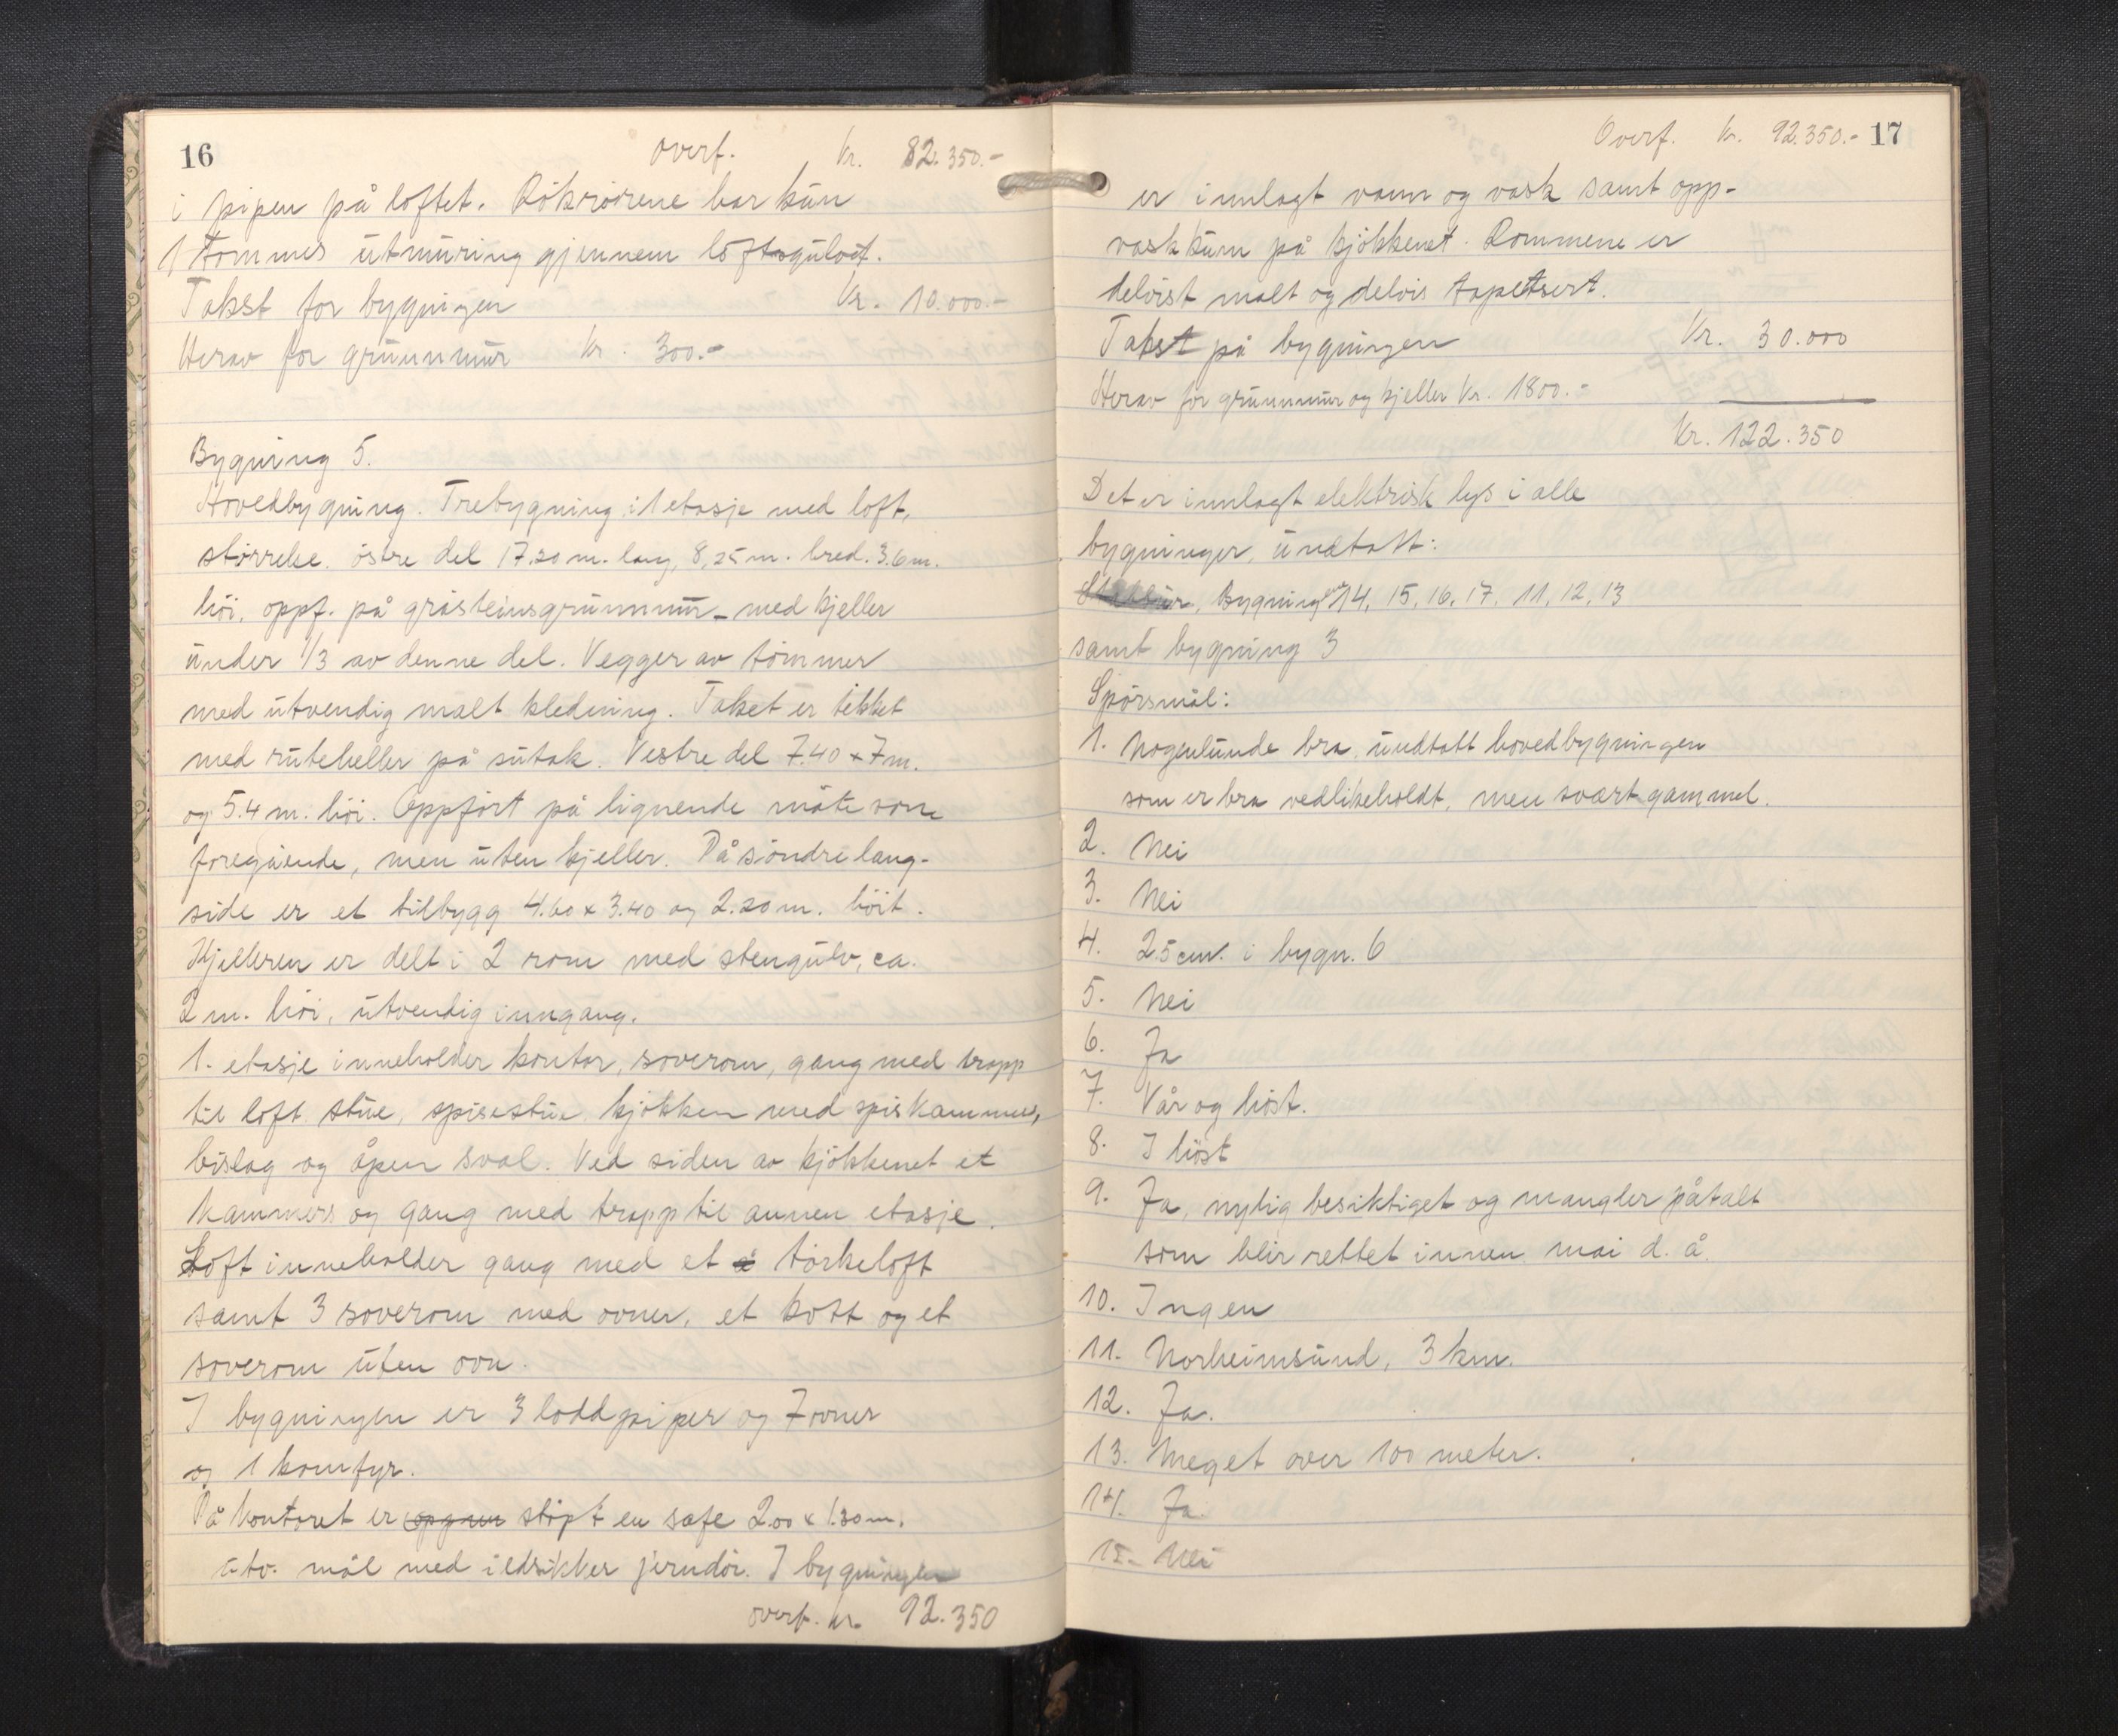 16 overf. Kr. 82.350.-
i pipen på loftet. Rökrörene har kun
1 tommes utmuring gjennem loftsgulvet.
Takst for bygningen Kr. 10.000.-
Herav for grunnmur Kr. 300.-
Bygning 5.
Hovedbygning. Trebygning i 1 etasje med loft,
störrelse. östre del 17.20 m. lang, 8,25 m. bred. 3.6 m.
höi, oppf. på gråsteinsgrunnmur - med kjeller
under 1/3 av denne del. Vegger av tömmer
med utvendig malt kledning. Taket er tekket
med ruteheller på sutak. Vestre del 7.40 x 7 m.
og 5.4 m. höi. Oppfört på lignende måte som
foregående, men uten kjeller. På söndre lang-
side er et tilbygg 4.60 x 3.40 og 2.20 m. höit.
Kjelleren er delt i 2 rom med stengulv, ca.
2 m. höi, utvendig inngang.
1. etasje inneholder kontor, soverom, gang med trapp
til loft stue, spisestue kjökken med spiskammers,
bislag og åpen sval. Ved siden av kjökkenet et
kammers og gang med trapp til annen etasje.
Loft inneholder gang med et törkeloft
samt 3 soverom med ovner, et kott og et
soverom uten ovn.
I bygningen er 3 loddpiper og 7 ovner
og 1 komfyr.
På kontoret er stöpt en safe 2.00 x 1.30 m.
utv. mål med ildsikker jerndör. I bygningen
overf. kr. 92.350
Overf. Kr. 92.350.- 17
er innlagt vann og vask samt opp-
vaskkum på kjökkenet. Rommene er
delvist malt og delvis tapetsert.
Takst på bygningen Kr. 30.000
Herav for grunnmur og kjeller Kr. 1800.-
Kr. 122.350
Det er innlagt elektrisk lys i alle
bygninger, undtatt:
Bygning 14, 15, 16, 17. 11, 12, 13
samt bygning 3
Spörsmål:
1. Nogenlunde bra, undtatt hovedbygningen
som er bra vedlikeholdt, men svært gammel.
2. Nei
3. Nei
4. 25 cm. i bygn. 6
5. Nei
6. Ja
7. Vår og höst.
8. I höst
9. Ja, nylig besiktiget og mangler påtalt
som blir rettet innen mai d. å.
10. Ingen
11. Norheimsund, 3 km.
12. Ja.
13. Meget over 100 meter.
14. Ja.
15. Nei